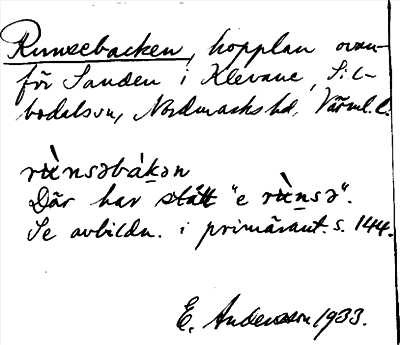 Runsebacken, hopplan ovan-
för Sanden i Klevane, Sil-
bodalssn, Nordmarks hd, Värml. l.
rʉ̀nsəbákən
Där har stått "e rʉ̀nsə".
Se avbildn. i primäruut. s. 144.
E. Andersson 1933.